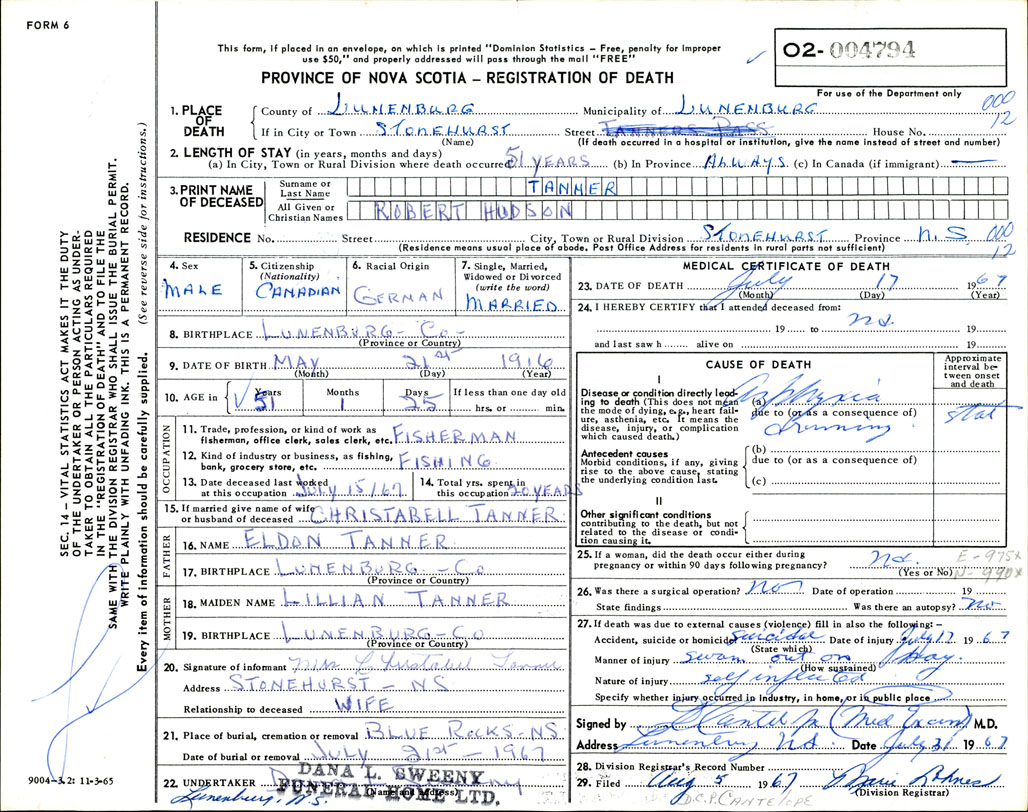 FORM 6
This form, if placed in an envelope, on which is printed "Dominion Statistics – Free, penalty for improper
use $50," and properly addressed will pass through the mail "FREE"
PROVINCE OF NOVA SCOTIA – REGISTRATION OF DEATH
O2-004794
For use of the Department only
SEC. 14 – VITAL STATISTICS ACT MAKES IT THE DUTY
OF THE UNDERTAKER OR PERSON ACTING AS UNDER-
TAKER TO OBTAIN ALL THE PARTICULARS REQUIRED
IN THE "REGISTRATION OF DEATH" AND TO FILE THE
SAME WITH THE DIVISION REGISTRAR WHO SHALL ISSUE THE BURIAL PERMIT.
WRITE PLAINLY WITH UNFADING INK. THIS IS A PERMANENT RECORD.
Every item of information should be carefully supplied. (See reverse side for instructions.)
1. PLACE OF DEATH
County of LUNENBURG Municipality of LUNENBURG 000 12
If in City or Town STONEHURST Street TANNERS PASS House No.
(Name) (If death occurred in a hospital or institution, give the name instead of street and number)
2. LENGTH OF STAY (in years, months and days)
(a) In City, Town or Rural Division where death occurred 51 YEARS (b) In Province ALWAYS (c) In Canada (if immigrant) —
3. PRINT NAME OF DECEASED
Surname or Last Name TANNER
All Given or Christian Names ROBERT HUDSON
RESIDENCE No. Street City, Town or Rural Division STONEHURST Province N.S 000 12
(Residence means usual place of abode. Post Office Address for residents in rural parts not sufficient)
4. Sex MALE
5. Citizenship (Nationality) CANADIAN
6. Racial Origin GERMAN
7. Single, Married, Widowed or Divorced (write the word) MARRIED
8. BIRTHPLACE LUNENBURG – CO –
(Province or Country)
9. DATE OF BIRTH MAY 21st 1916
(Month) (Day) (Year)
10. AGE in Years 51 Months 1 Days 25 If less than one day old
hrs. or min.
OCCUPATION
11. Trade, profession, or kind of work as
fisherman, office clerk, sales clerk, etc. FISHERMAN
12. Kind of industry or business, as fishing,
bank, grocery store, etc. FISHING
13. Date deceased last worked
at this occupation JULY 15/67
14. Total yrs. spent in
this occupation 20 YEARS
15. If married give name of wife
or husband of deceased CHRISTABELL TANNER
FATHER
16. NAME ELDON TANNER
17. BIRTHPLACE LUNENBURG – CO
(Province or Country)
MOTHER
18. MAIDEN NAME LILLIAN TANNER
19. BIRTHPLACE LUNENBURG – CO
(Province or Country)
20. Signature of informant Mrs Christabel Tanner
Address STONEHURST – NS
Relationship to deceased WIFE
21. Place of burial, cremation or removal BLUE ROCKS – NS.
Date of burial or removal July 21st – 1967
22. UNDERTAKER
(Name and Address)
DANA L. SWEENY
FUNERAL HOME LTD.
Lunenburg, N.S.
9004-3.2: 11-3-65
MEDICAL CERTIFICATE OF DEATH
23. DATE OF DEATH July 17 1967
(Month) (Day) (Year)
24. I HEREBY CERTIFY that I attended deceased from
19 to 19
and last saw h alive on 19
CAUSE OF DEATH
Approximate interval between onset and death
I
Disease or condition directly lead-
ing to death (This does not mean
the mode of dying, e.g., heart fail-
ure, asthenia, etc. It means the
disease, injury, or complication
which caused death.)
(a) Asphyxia
due to (or as a consequence of)
Drowning
stat
Antecedent causes
Morbid conditions, if any, giving
rise to the above cause, stating
the underlying condition last.
(b)
due to (or as a consequence of)
(c)
II
Other significant conditions
contributing to the death, but not
related to the disease or condi-
tion causing it.
25. If a woman, did the death occur either during
pregnancy or within 90 days following pregnancy?
(Yes or No)
E-975x
N-990x
26. Was there a surgical operation? No Date of operation 19
State findings Was there an autopsy? No
27. If death was due to external causes (violence) fill in also the following: –
Accident, suicide or homicide? Suicidal Date of injury July 17 1967
(State which)
Manner of injury swam out on Bay.
(How sustained)
Nature of injury self inflicted
Specify whether injury occurred in industry, in home, or in public place
Signed by (Med Exam) M.D.
Address Lunenburg N.S. Date July 31 1967
28. Division Registrar's Record Number
29. Filed Aug 5 1967
(Division Registrar)
D.C.P. CANTELOPE